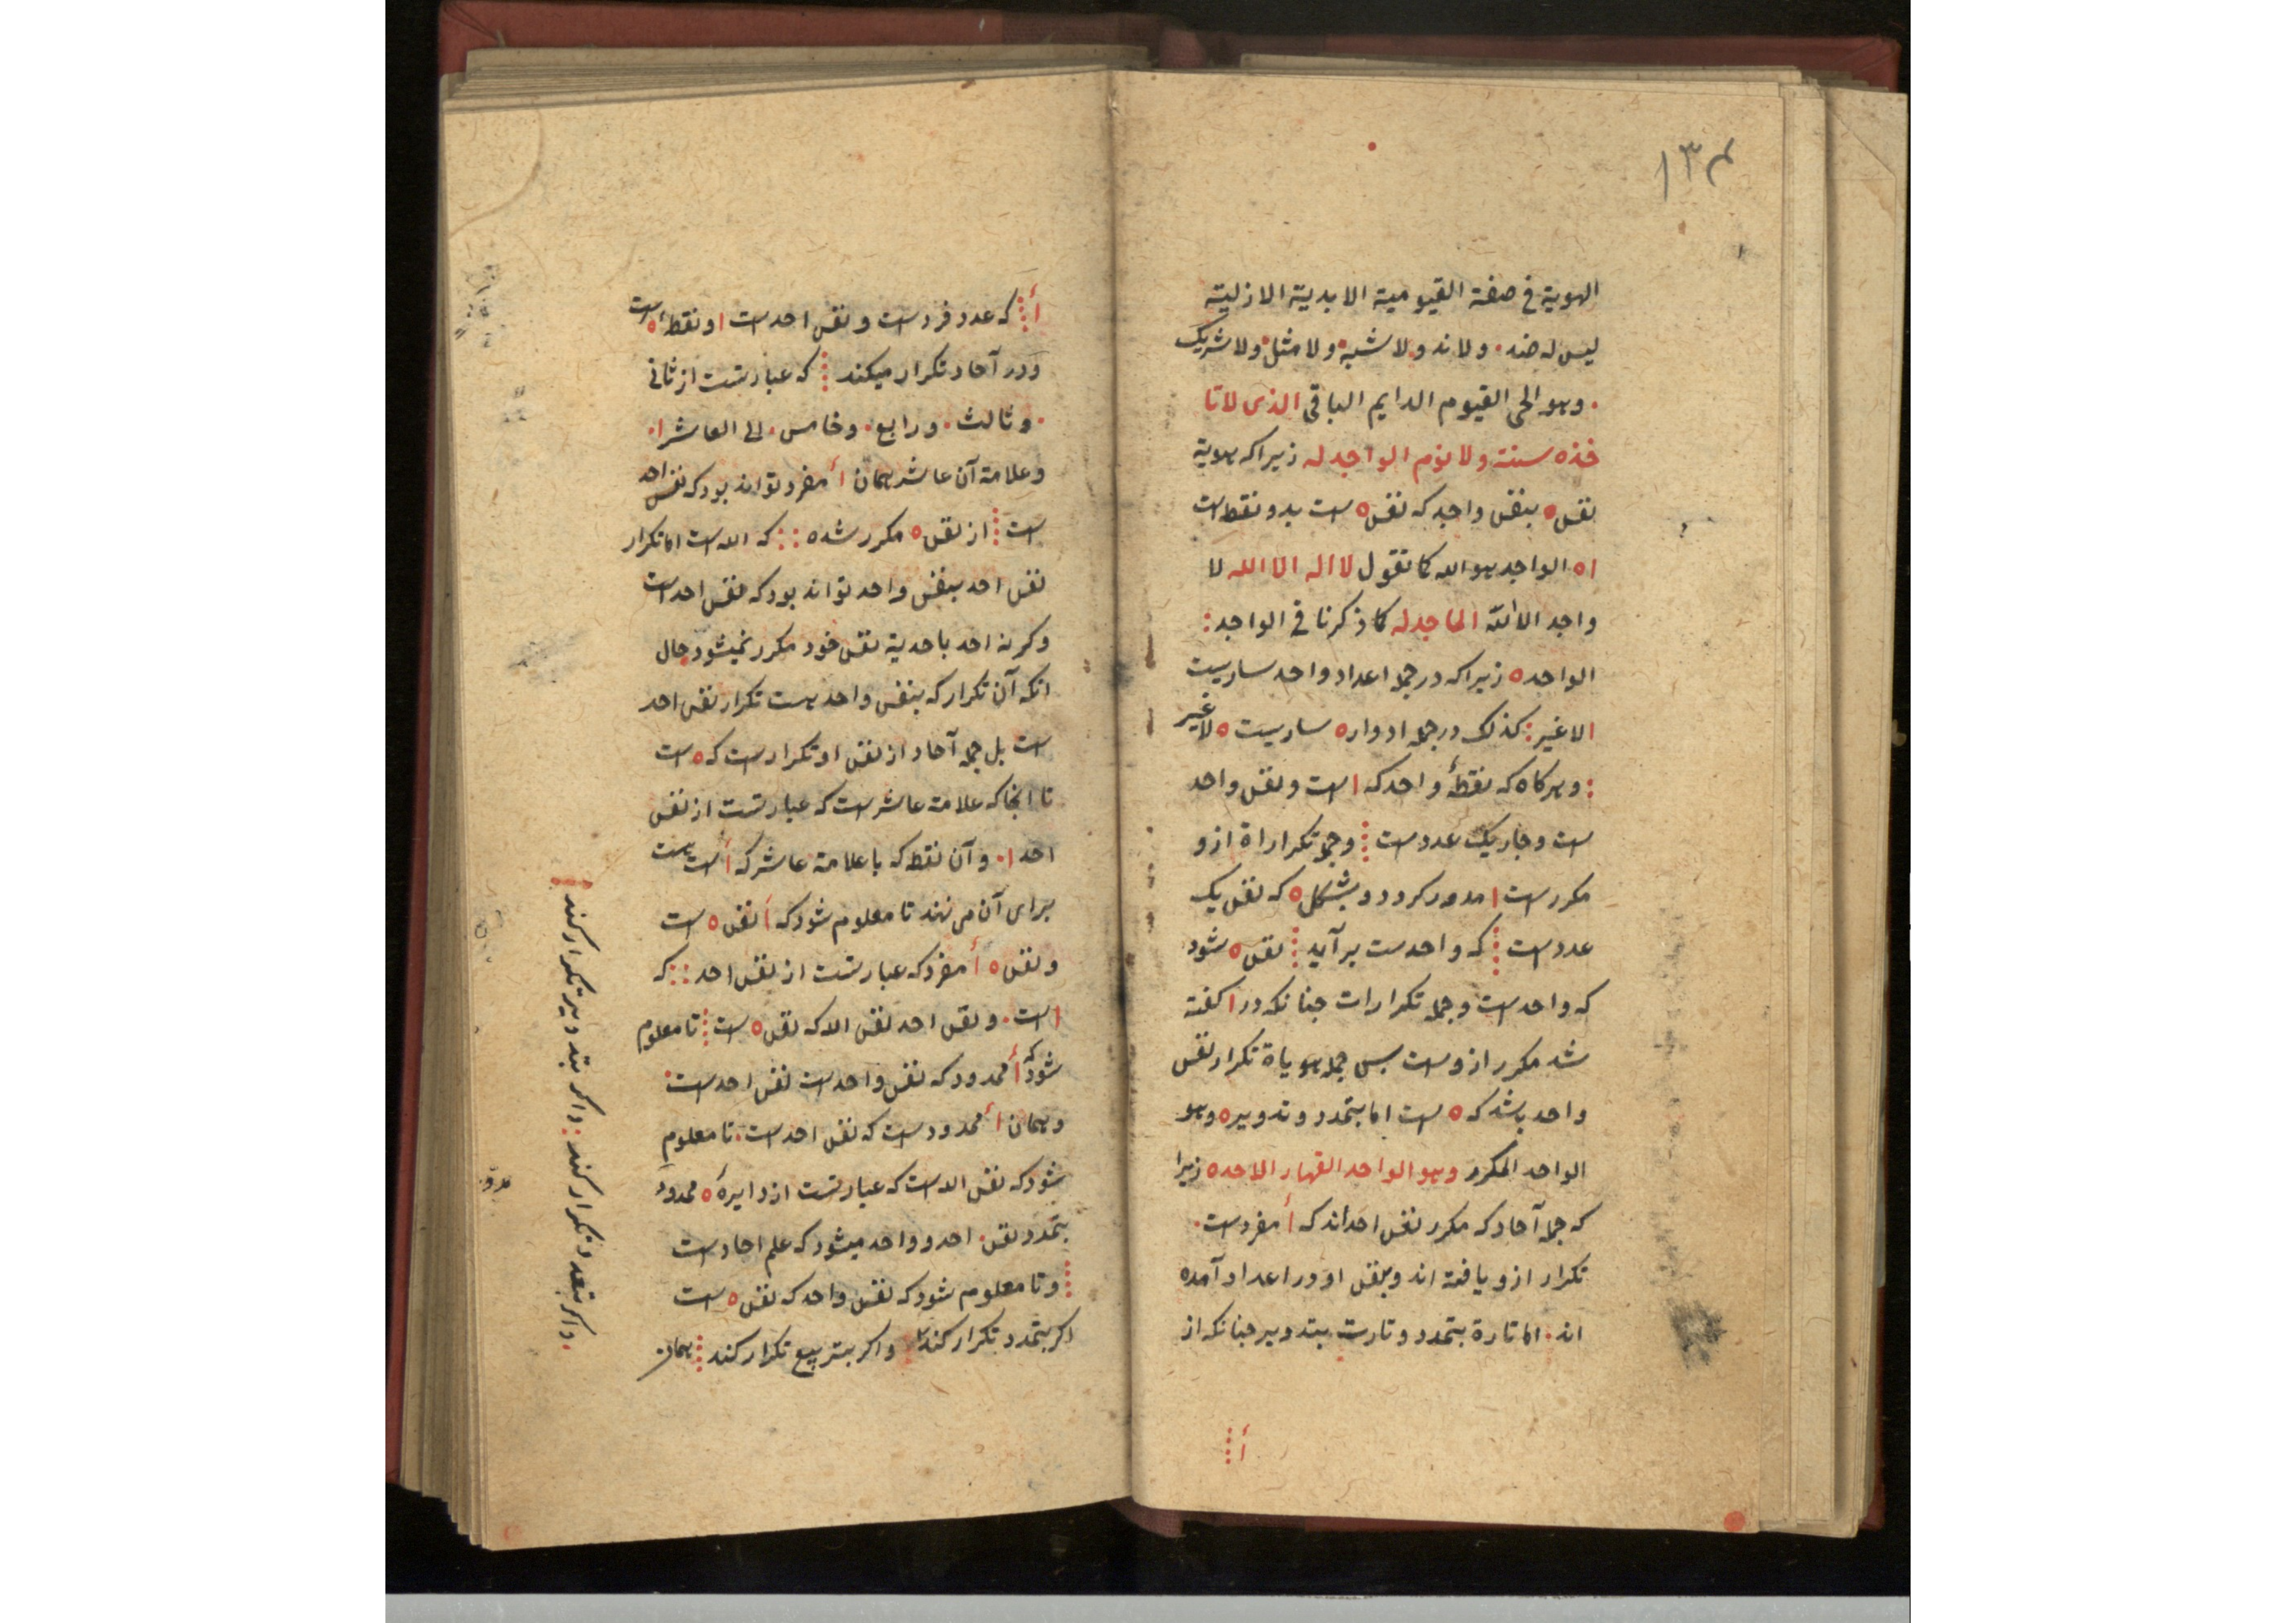 ١٣٤
الهوية فی صفة القيومية الابدية الازلية
ليس له ضد . ولا ند ولا شبه ولا مثل ولا شریک
. وهو الحی القيوم الدايم الباقی الذی لا تا
خذه سنة ولا نوم الواجد له زیرا که هویة
نفس ه بنفس واجد که نفس ه است بدو نقطه است
ا ه الواجد هو الله کما نقول لا اله الا الله لا
واجد الا الله الماجد له کما ذکرنا فی الواجد :
الواحد ه زیرا که در جمله اعداد واحد ساریست
لا غیر : کذلک در جمله ادوار ه ساریست ه لا غیر
: وهرکاه که نقطهٔ واحد که ا است ونفس واحد
است وجار یک عدد است ⁞ وجمله تکرارات ازو
مکرر است ا مدور کردد وبشکل ه که نفس یک
عدد است ⁞ که واحدست بر آید ⁞ نفس ه شود
که واحد است وجمله تکرارات جنانکه در ا کفته
شد مکرر ازوست بس جمله هویاة تکرار نفس
واحد باشد که ه است اما بتمدد وتدویر ه وهو
الواحد المکرر وهو الواحد القهار الاحد ه زیرا
که جمله آحاد که مکرر نفس احداند که أ مفردست .
تکرار ازو یافته اند وبنفس او در اعداد آمده
اند . اما تارة بتمدد وتارت بتدویر جنانکه از
أ ⁞
أ ⁞ که عدد فردست ونفس احد است ا ونقطه ه است
ودر آحاد تکرار میکند ⁞ که عبارتست از ثانی
. وثالث . ورابع . وخامس . الی العاشر ا .
وعلامة آن عاشر همان أ مفرد تواند بود که نفس احد
است ⁞ از نفس ه مکرر شده : : که اله است اما تکرار
نفس احد بنفس واحد تواند بود که نفس احد است
وکرنه احد باحدیة نفس خود مکرر نمیشود حال
انکه آن تکرار که بنفس واحد هست تکرار نفس احد
است بل جمله آحاد از نفس او تکرار است که ه است
تا انجا که علامة عاشر است که عبارتست از نفس
احد ا . وآن نقطه که با علامة عاشر که أ است هست
برای آن می نهند تا معلوم شود که أ نفس ه است
ونفس ه أ مفرد که عبارتست از نفس احد : : که
ا است . ونفس احد نفس اله که نفس ه است ⁞ تا معلوم
شود که أ ممدود که نفس واحد است نفس احد است .
وهمان أ ممدود است که نفس احد است . تا معلوم
شود که نفس اله است که عبارتست از دایرهٔ ه ممدود
بتمدد نفس . احد و واحد میشود که علم احاد است
⁞ وتا معلوم شود که نفس واحد که نفس ه است
اکر بتمدد تکرار کند واکر بتربیع تکرار کند ⁞ همان
. واکر بتعدد تکرار کند : واکر بتدویر تکرار کند ⁞